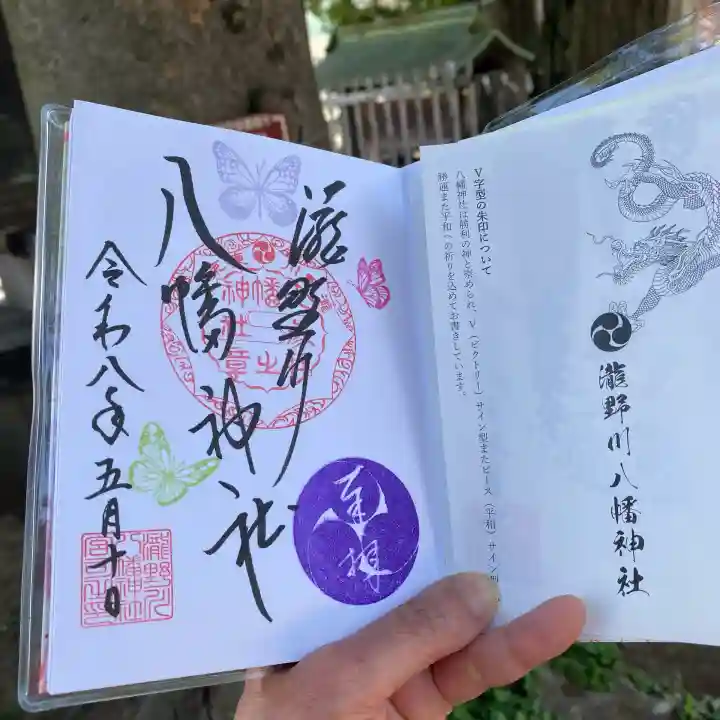 瀧野川
八幡神社
令和八年五月十日
奉拝
瀧野川八幡神社
V字型の朱印について
八幡神社は勝利の神と崇められ、V(ビクトリー)サイン型またピース(平和)サイン型
勝運また平和への祈りを込めてお書きしています。